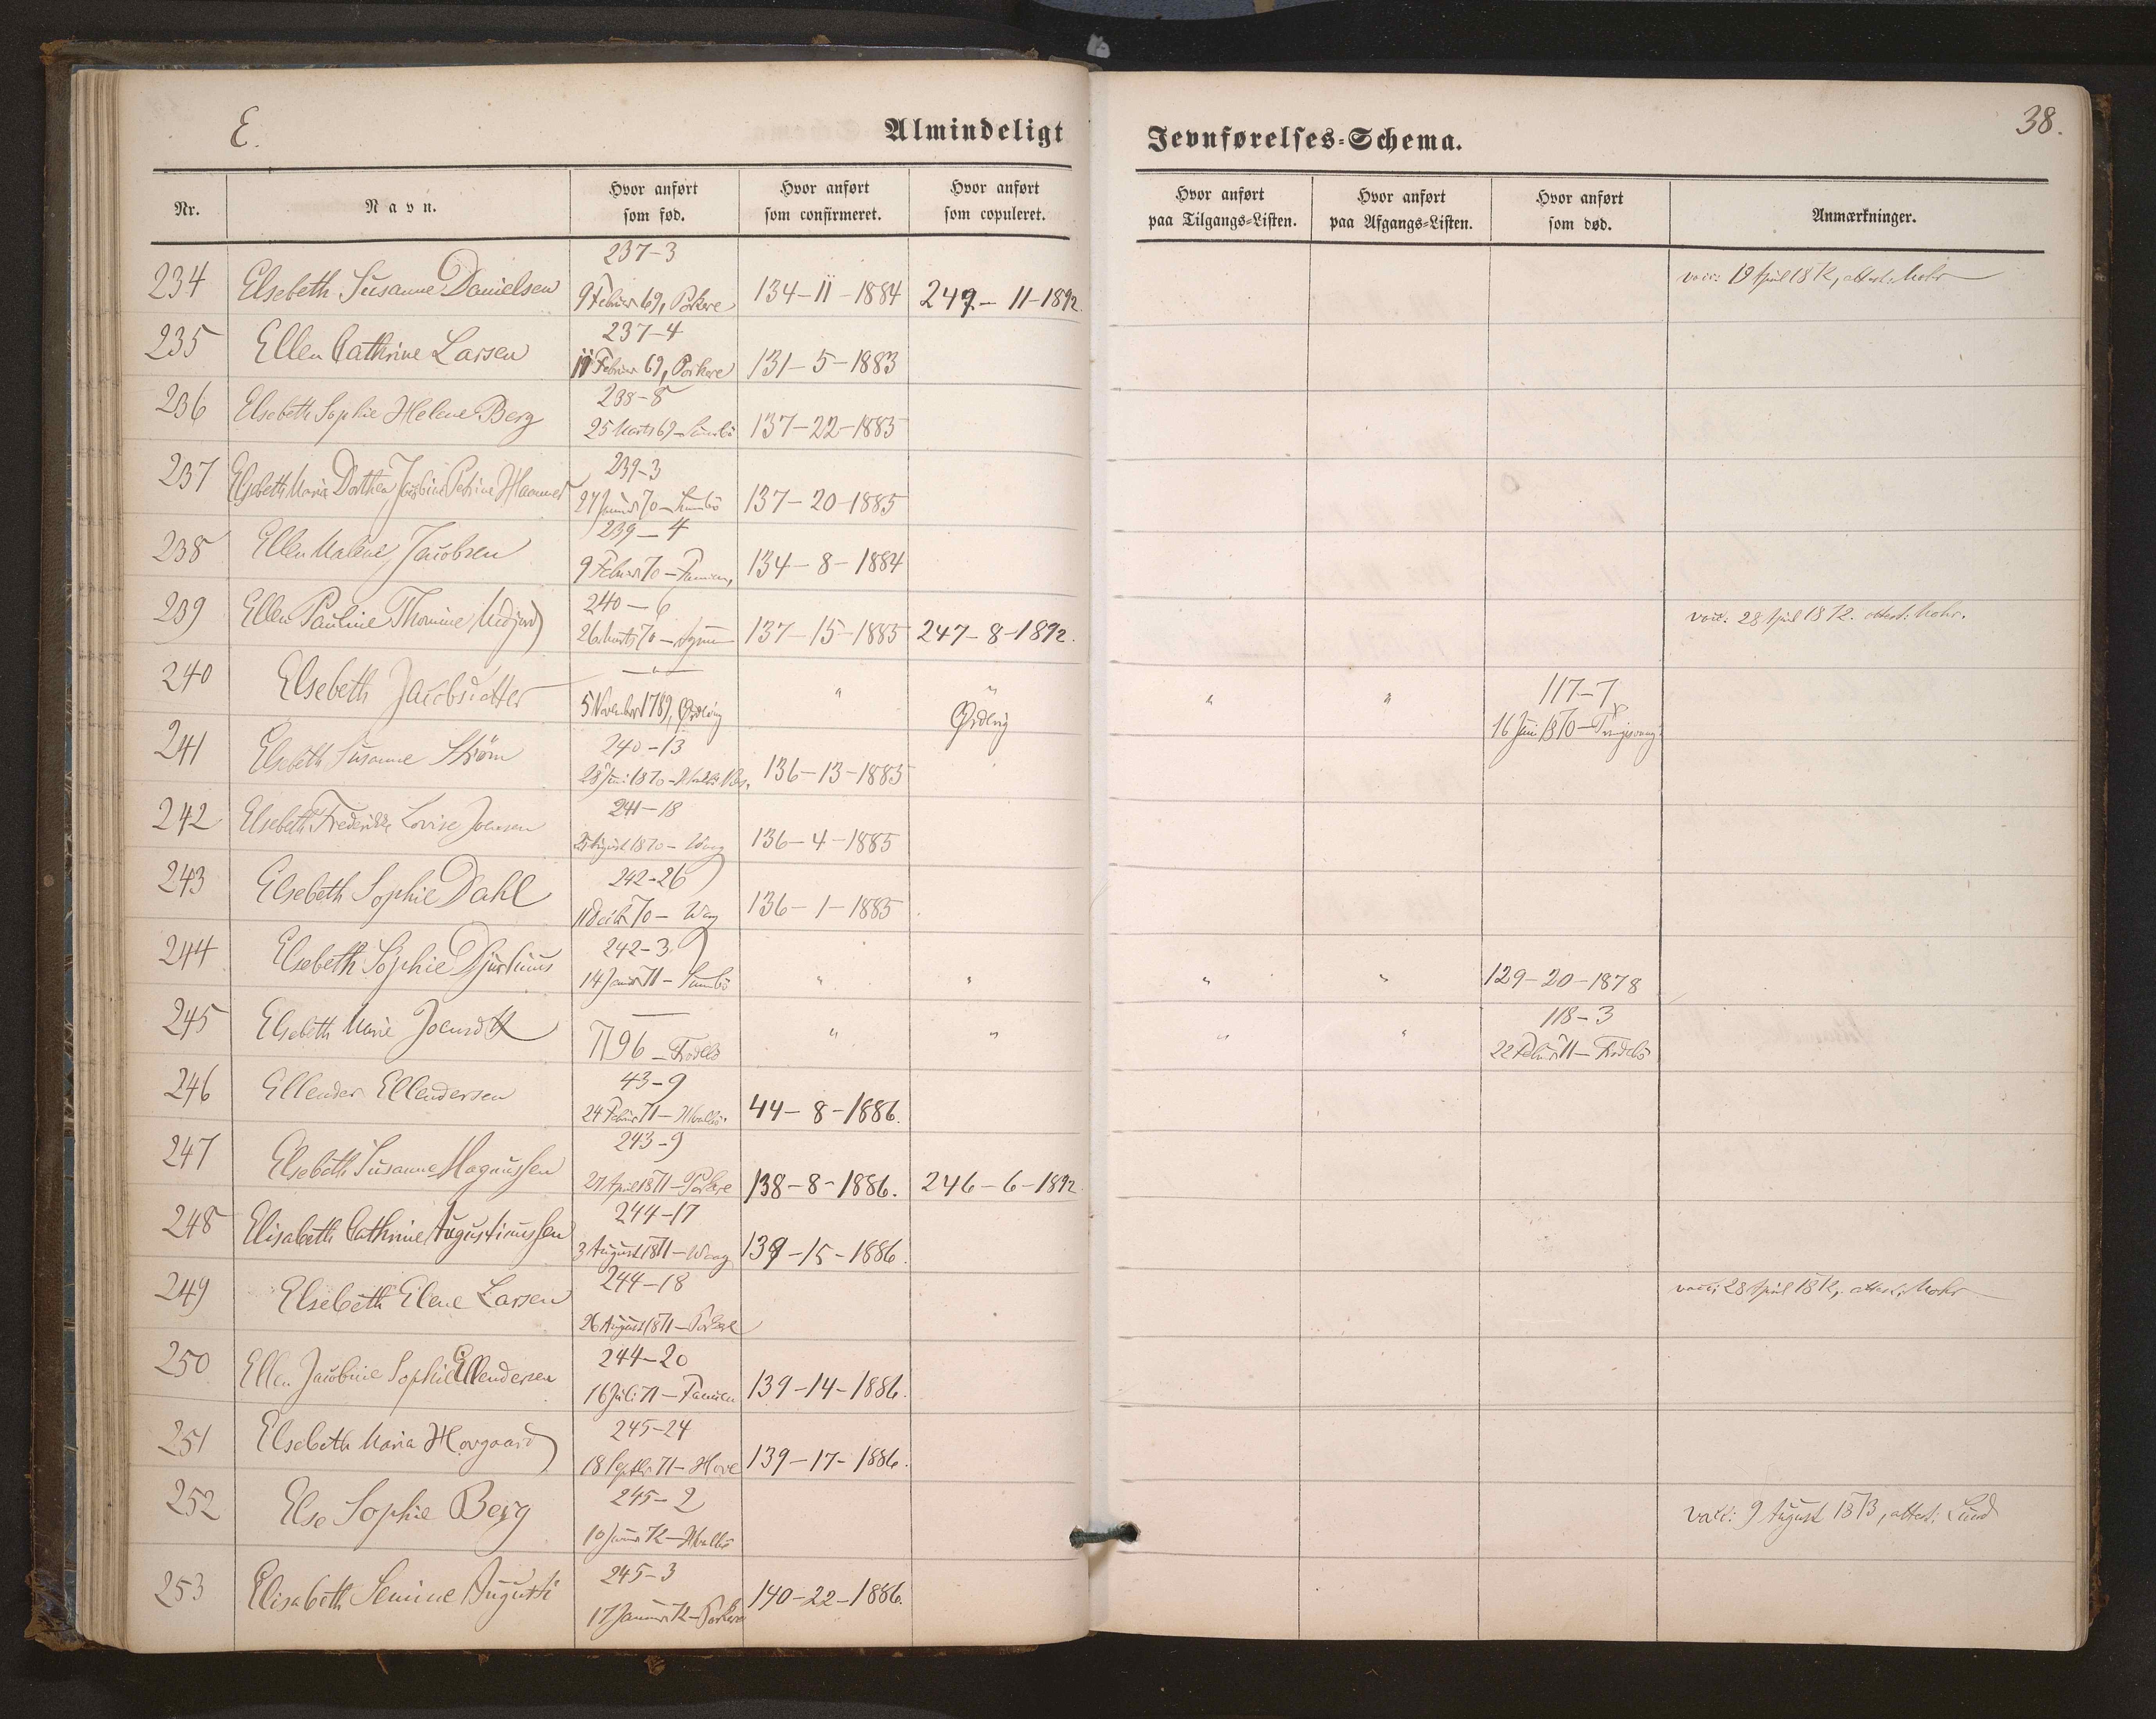 E.
Almindeligt Jevnførelses-Schema.
38.
Nr. Navn. Hvor anført som fød. Hvor anført som confirmeret. Hvor anført som copuleret. Hvor anført paa Tilgangs-Listen. Hvor anført paa Afgangs-Listen. Hvor anført som død. Anmærkninger.
237-3
234 Elsebeth Susanne Danielsen 9 Februar 69, Porkere 134-11-1884 249-11-1892 vacc: 19 April 1872, attest: Mohr
237-4
235 Ellen Cathrine Larsen 11 Februar 69, Porkere 131-5-1883
238-8
236 Elsebeth Sophie Helene Berg 25 Marts 69 - Sumbö 137-22-1885
239-3
237 Elsebeth Maria Dorthea Petrine Hammer 27 Januar 70 - Sumbö 137-20-1885
239-4
238 Ellen Malene Jacobsen 9 Februar 70 - Famien, 134-8-1884
240-6
239 Ellen Pauline Thomine Midjord 26 Marts 70 - 137-15-1885 247-8-1892. vacc: 28 April 1872. attest: Mohr.
240 Elsebeth Jacobsdatter 5 November 1789, Ørdevig " " Ørdevig " " 117-7
16 Juni 1870 -
240-13
241 Elsebeth Susanne Ström 28 Juni 1870 - 136-13-1885
241-18
242 Elsebeth Frederikke Lovise Joensen August 1870 - Waag 136-4-1885
242-26
243 Elsebeth Sophie Dahl 11 Decbr 70 - Waag 136-1-1885
242-3
244 Elsebeth Sophie Djurhuus 14 Januar 71 - Sumbö " " " " 129-20-1878
245 Elsebeth Marie Joensdtr 1796 - Frodebö " " " " 118-3
22 Februar 71 - Frodebö
43-9
246 Ellender Ellendersen 24 Februar 71 - Hvalbö. 44-8-1886.
243-9
247 Elsebeth Susanne Magnussen 27 April 1871 - Porkere 138-8-1886. 246-6-1892
244-17
248 Elisabeth Cathrine Augustinussen 3 August 1871 - Waag 139-15-1886.
244-18
249 Elsebeth Elene Larsen 26 August 1871 - Porkere vacc: 28 April 1872, attest: Mohr
244-20
250 Ellen Jacobine Sophie Ellendersen 16 Juli 71 - Famien 139-14-1886.
245-24
251 Elsebeth Maria Hovgaard 18 Septbr 71 - Hove 139-17-1886.
245-2
252 Else Sophie Berg 10 Januar 72 - Hvalbö vacc: 9 August 1873, attest: Lund
245-3
253 Elisabeth Semine Augusti 17 Januar 72 - Porkere 140-22-1886.